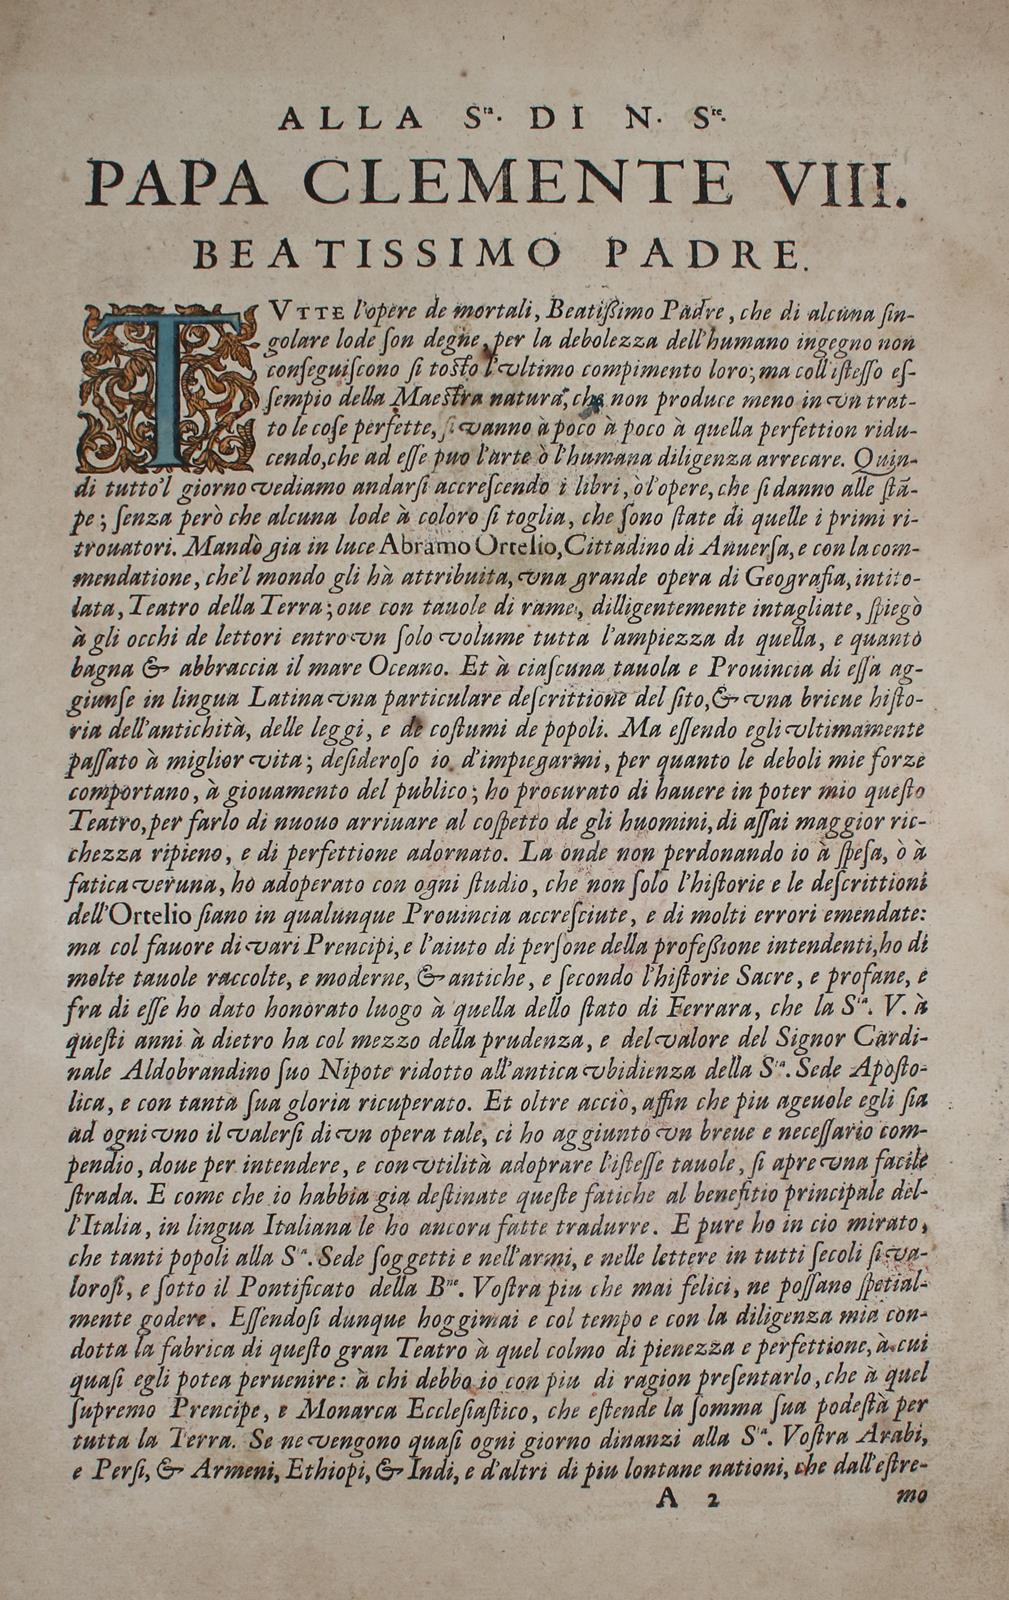 ALLA Sᵗᵃ. DI N. Sʳᵉ.
PAPA CLEMENTE VIII.
BEATISSIMO PADRE.
TVTTE l'opere de mortali, Beatißimo Padre, che di alcuna ſin-
golare lode ſon degne, per la debolezza dell'humano ingegno non
conſeguiſcono ſi toſto l'vltimo compimento loro; ma coll'iſteſſo eſ-
ſempio della Maeſtra natura, che non produce meno in vn trat-
to le coſe perfette, ſi vanno à poco à poco à quella perfettion ridu-
cendo, che ad eſſe puo l'arte ò l'humana diligenza arrecare. Quin-
di tutto'l giorno vediamo andarſi accreſcendo i libri, ò l'opere, che ſi danno alle ſtā-
pe; ſenza però che alcuna lode à coloro ſi toglia, che ſono ſtate di quelle i primi ri-
trouatori. Mandò gia in luce Abramo Ortelio, Cittadino di Anuerſa, e con la com-
mendatione, che'l mondo gli hà attribuita, vna grande opera di Geografia, intito-
lata, Teatro della Terra; oue con tauole di rame, dilligentemente intagliate, ſpiegò
à gli occhi de lettori entro vn ſolo volume tutta l'ampiezza di quella, e quanto
bagna & abbraccia il mare Oceano. Et à ciaſcuna tauola e Prouincia di eſſa ag-
giunſe in lingua Latina vna particulare deſcrittione del ſito, & vna brieue hiſto-
ria dell'antichità, delle leggi, e de coſtumi de popoli. Ma eſſendo egli vltimamente
paſſato à miglior vita; deſideroſo io d'impiegarmi, per quanto le deboli mie forze
comportano, à giouamento del publico; ho procurato di hauere in poter mio queſto
Teatro, per farlo di nuouo arriuare al coſpetto de gli huomini, di aſſai maggior ric-
chezza ripieno, e di perfettione adornato. La onde non perdonando io à ſpeſa, ò à
fatica veruna, ho adoperato con ogni ſtudio, che non ſolo l'hiſtorie e le deſcrittioni
dell'Ortelio ſiano in qualunque Prouincia accreſciute, e di molti errori emendate:
ma col fauore di vari Prencipi, e l'aiuto di perſone della profeßione intendenti, ho di
molte tauole raccolte, e moderne, & antiche, e ſecondo l'hiſtorie Sacre, e profane, e
fra di eſſe ho dato honorato luogo à quella dello ſtato di Ferrara, che la Sᵗᵃ. V. à
queſti anni à dietro ha col mezzo della prudenza, e del valore del Signor Cardi-
nale Aldobrandino ſuo Nipote ridotto all'antica vbidienza della Sᵗᵃ. Sede Apoſto-
lica, e con tanta ſua gloria ricuperato. Et oltre acciò, affin che piu ageuole egli ſia
ad ogni vno il valerſi di vn opera tale, ci ho aggiunto vn breue e neceſſario com-
pendio, doue per intendere, e con vtilità adoprare l'iſteſſe tauole, ſi apre vna facile
ſtrada. E come che io habbia gia deſtinate queſte fatiche al benefitio principale del-
l'Italia, in lingua Italiana le ho ancora fatte tradurre. E pure ho in cio mirato,
che tanti popoli alla Sᵗᵃ. Sede ſoggetti e nell'armi, e nelle lettere in tutti ſecoli ſi va-
loroſi, e ſotto il Pontificato della Bⁿᵉ. Voſtra piu che mai felici, ne poſſano ſpetial-
mente godere. Eſſendoſi dunque hoggimai e col tempo e con la diligenza mia con-
dotta la fabrica di queſto gran Teatro à quel colmo di pienezza e perfettione, à cui
quaſi egli potea peruenire: à chi debbo io con piu di ragion preſentarlo, che à quel
ſupremo Prencipe, e Monarca Eccleſiaſtico, che eſtende la ſomma ſua podeſtà per
tutta la Terra. Se ne vengono quaſi ogni giorno dinanzi alla Sᵗᵃ. Voſtra Arabi,
e Perſi, & Armeni, Ethiopi, & Indi, e d'altri di piu lontane nationi, che dall'eſtre-
A 2 mo